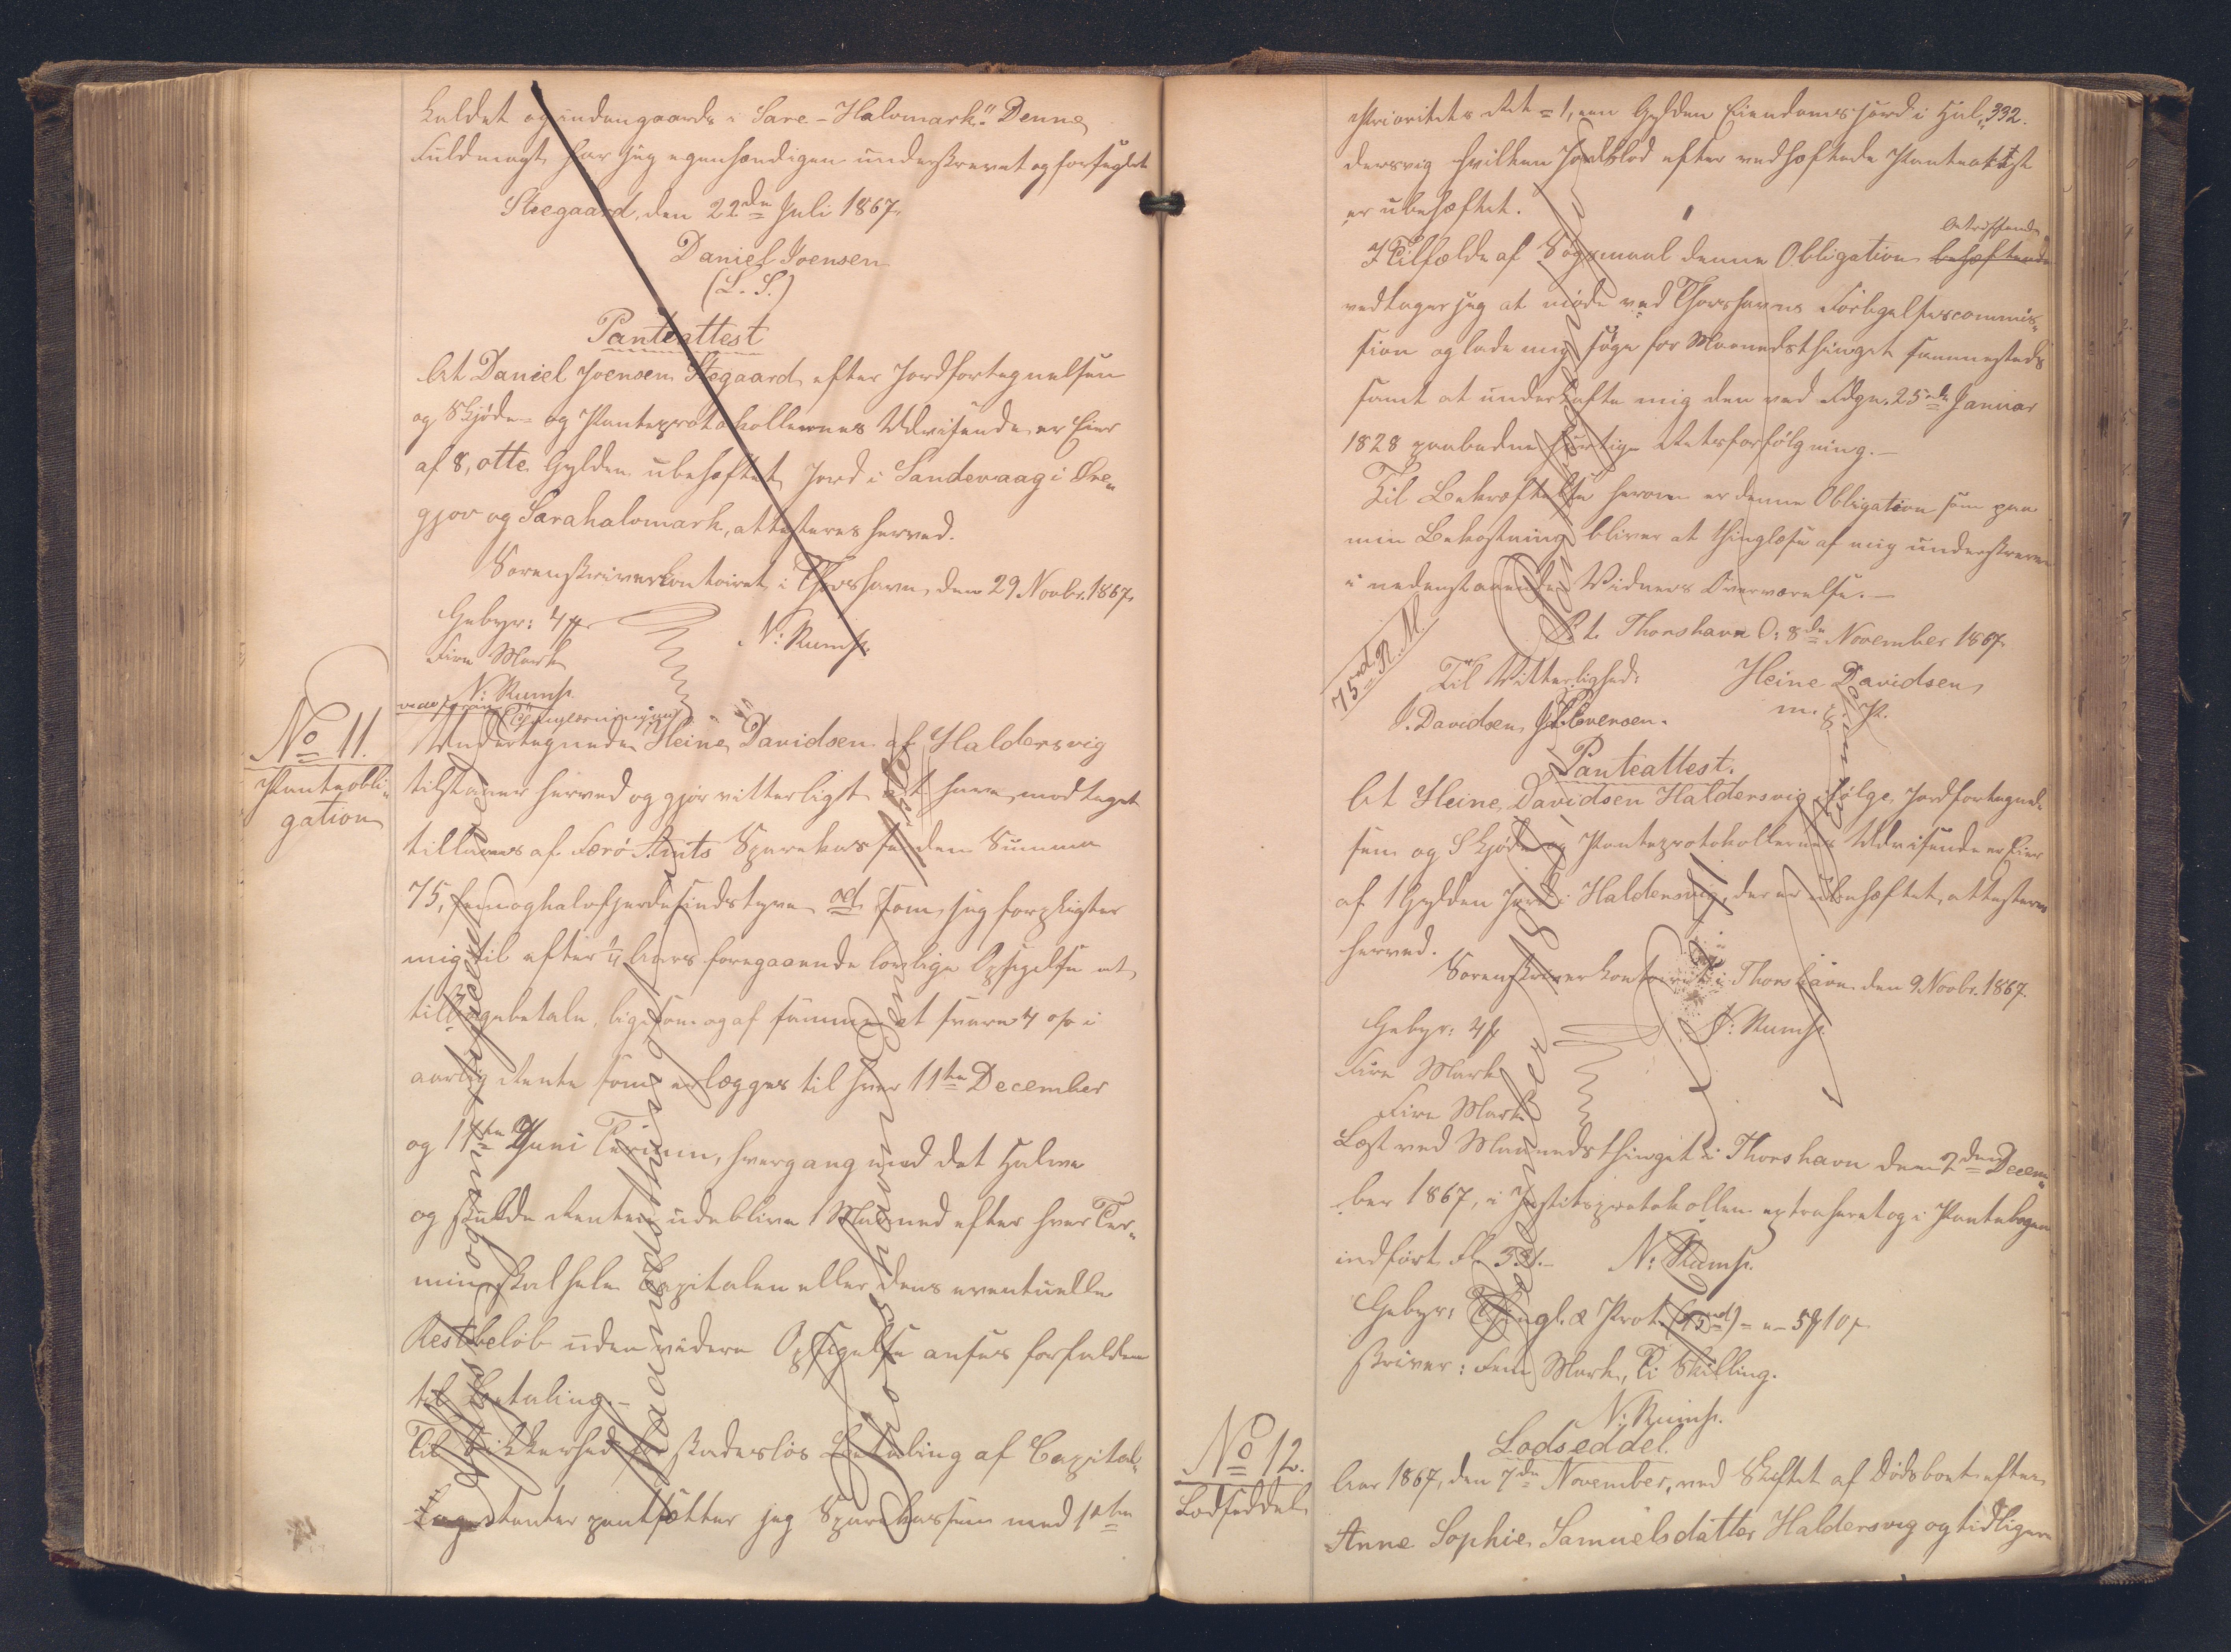 kaldet og indengaards i Sare-Halvmark". Denne
Fuldmagt har jeg egenhændigen underskrevet og forseglet
Stegaard, den 22de Juli 1867.
Daniel Joensen
(L. S.)
Panteattest
At Daniel Joensen Stegaard efter Jordfortegnelsen
og Skjøde- og Panteprotokollernes Udvisende er Eier
af 8, otte Gylden ubehæftet Jord i Sandevaag i Øre-
gjov og Sarahalvmark, attesteres herved.
Sorenskriverkontoiret i Thorshavn, den 29 Novbr. 1867.
Gebyr: 4 #
Fire Mark
N: Rump.
N: Rump.
No 11.
Panteobli-
gation
Undertegnede Heine Davidsen af Haldersvig
tilstaaer herved og gjør vitterligt at have modtaget
tillaans af Færø Amts Sparekasse den Summa
75, femoghalvfjerdesindstyve rd som jeg forpligter
mig til efter ½ Aars foregaaende lovlige Opsigelse at
tilbagebetale, ligesom og af samme at svare 4 o/o i
aarlig Rente som erlægges til hver 11te December
og 11te Juni Termin, hvergang med det Halve
og skulde Renten udeblive 1 Maaned efter hver Ter-
min skal hele Capitalen eller dens eventuelle
Restbeløb uden videre Opsigelse anses forfalden
til Betaling.-
Til Sikkerhed for skadesløs Betaling af Capital
og Renter pantsætter jeg Sparekassen med 1ste
332.
Prioritets Ret = 1, een Gylden Eiendomsjord i Hal-
dersvig hvilken Jordlod efter vedhæftede Panteattest
er ubehæftet.
I Tilfælde af Søgsmaal denne Obligation behæftende betræffende
vedtager jeg at møde ved Thorshavns Forligelsescommis-
sion og lade mig søge for Maanedsthinget sammesteds
samt at underkaste mig den ved Fdgn. 25de Januar
1828 paabudne hurtige Retsforfølgning.-
Til Bekræftelse herom er denne Obligation som paa
min Bekostning bliver at thinglæse af mig underskreven
i nedenstaaende Vidners Overværelse.-
75 rd R. M.
p. t. Thorshavn D: 8de November 1867.
Til Vitterlighed: Heine Davidsen
J. Davidsen, m. f. P.
Panteattest.
At Heine Davidsen Haldersvig ifølge Jordfortegnel-
sen og Skjøde og Panteprotokollernes Udvisende er Eier
af 1 Gylden Jord i Haldersvig, der er ubehæftet, attesteres
herved.
Sorenskriverkontoiret i Thorshavn den 9 Novbr. 1867.
Gebyr: 4 #
N: Rump.
Fire Mark
Fire Mark
Læst ved Maanedsthinget i Thorshavn den 2den Decem-
ber 1867, i Justitsprotokollen extraheret og i Pantebogen
indført Fl. 331.- N: Rump.
Gebyr, Thingl. & Prot. (75 rd) = 5 # 10 s
skriver: Fem Mark, Ti Skilling.
N: Rump.
No 12.
Lodseddel
Lodseddel.
Aar 1867, den 7de November, ved Skiftet af Dødsboet efter
Anne Sophie Samuelsdatter Haldersvig og tidligere